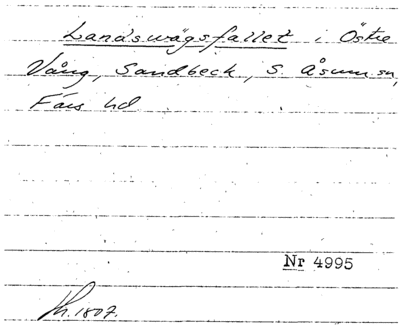 Landswägsfallet i Östre
Vång, Sandbeck, S. Åsum sn,
Färs hd
Nr 4995
Lh. 1807.